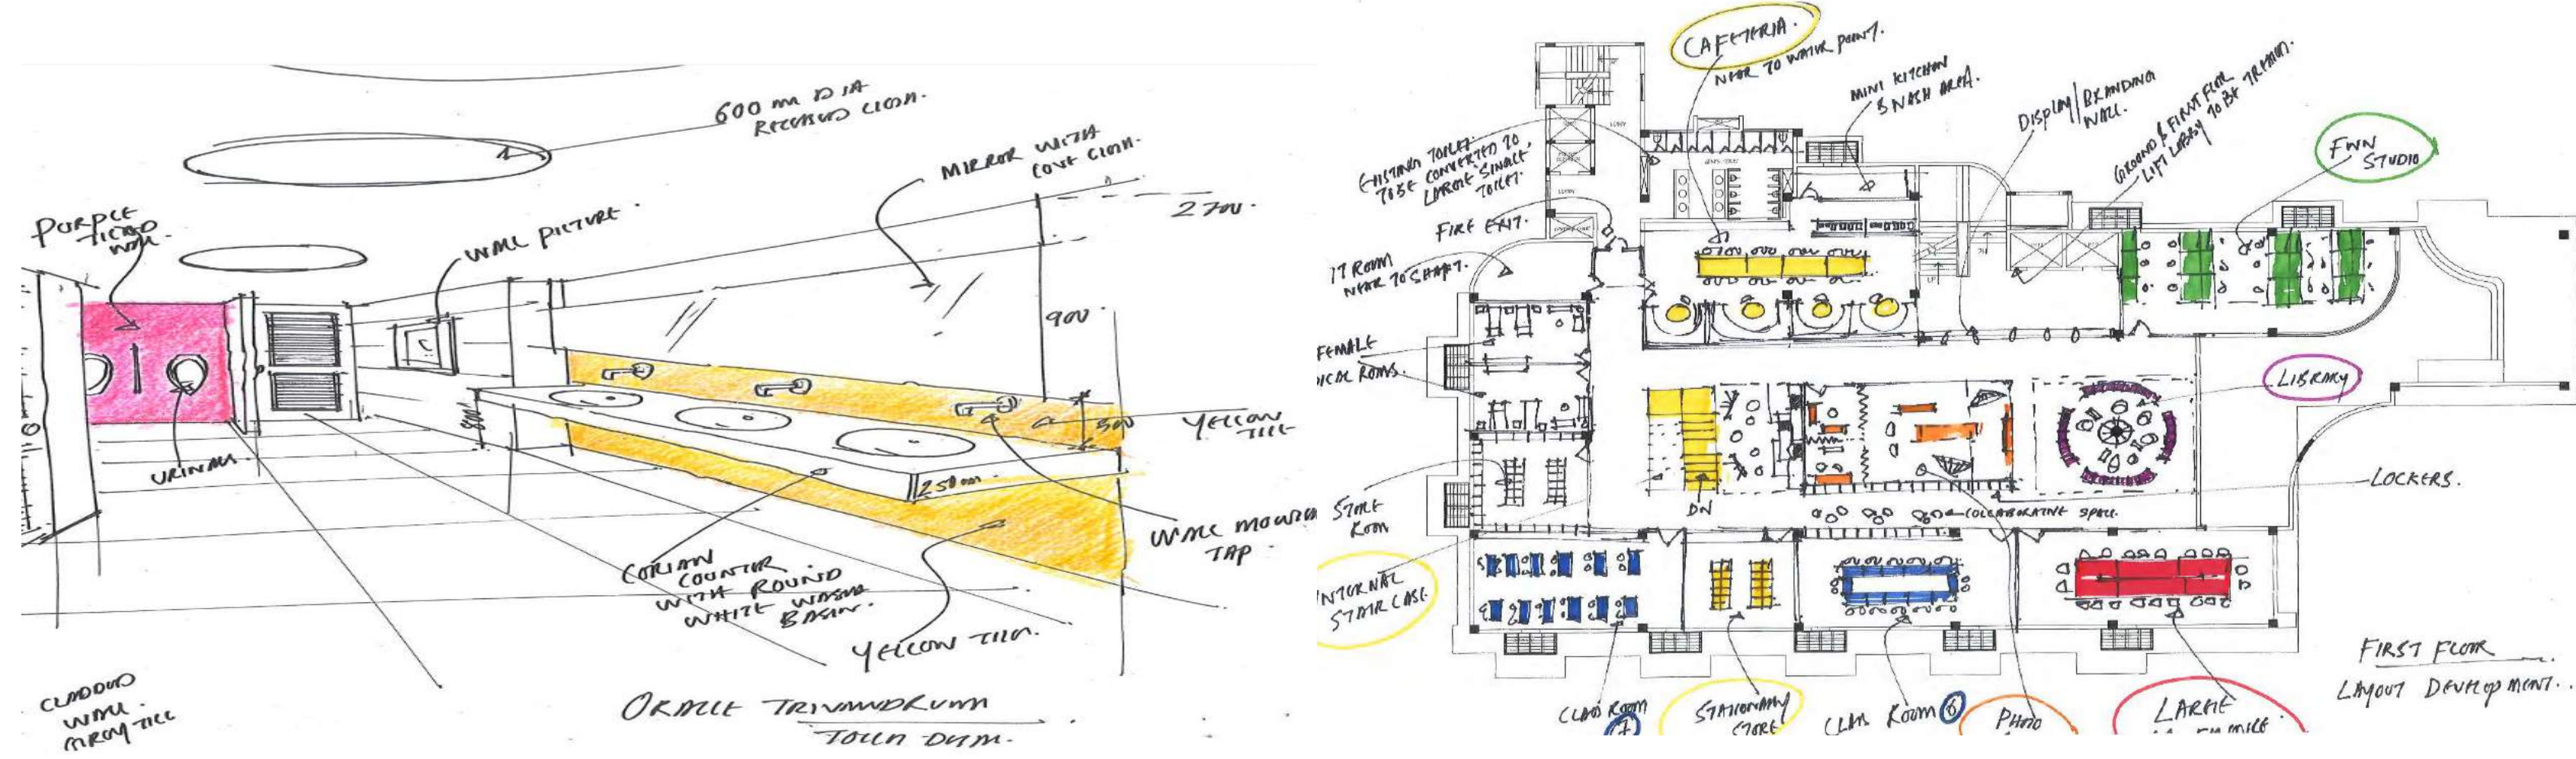 600 mm DIA
RECESSED
MIRROR WITH
COVE
2700.
PURPLE
TILED
WALL.
WALL PICTURE.
900.
800
300
YELLOW
TILE
URINALS
1250 mm.
WALL MOUNTED
TAP.
CORIAN
COUNTER
WITH ROUND
WHITE WASH
BASIN.
YELLOW TILES.
CLADDED
WALL.
GREY TILE
ORACLE TRIVANDRUM
CAFETERIA.
NEAR TO WATER POINT.
MINI KITCHEN
& WASH AREA.
DISPLAY/BRANDING
WALL.
GROUND & FIRST FLOOR
LIFT LOBBY TO BE
STUDIO
EXISTING TOILET
TO BE CONVERTED TO
LARGE SINGLE
TOILET.
FIRE EXIT.
IT ROOM
NEAR TO SHAFT.
FEMALE
ROOMS.
LIBRARY
LOCKERS.
STORE
ROOM
DN
COLLABORATIVE SPACE.
INTERNAL
STAIR CASE
CLASS ROOM
7
STATIONARY
STORE
CLASS ROOM 6
PHOTO
LARGE
FIRST FLOOR
LAYOUT DEVELOPMENT..